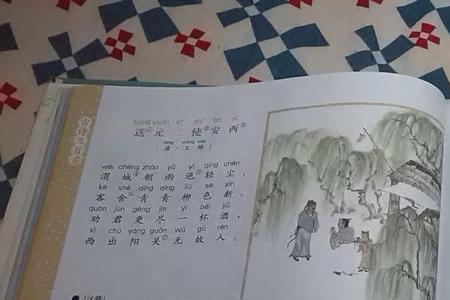 古诗三百首
sòng yuán èr shǐ ān xī
送元二使安西
táng wáng wéi
[唐·王维]
wèi chéng zhāo yǔ yì qīng chén
渭城朝雨浥轻尘，
kè shè qīng qīng liǔ sè xīn
客舍青青柳色新。
quàn jūn gèng jìn yì bēi jiǔ
劝君更尽一杯酒，
xī chū yáng guān wú gù rén
西出阳关无故人。